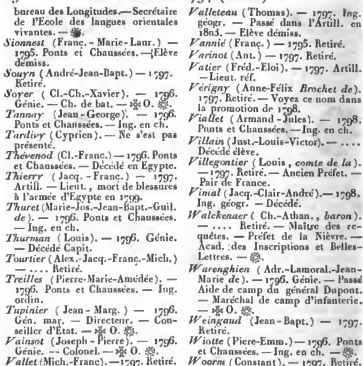 bureau des Longitudes.—Secrétaire
de l'Ecole des langues orientales
vivantes. —
Sionnest (Franç.-Marie-Lanr.) —
1795. Ponts et Chaussées.—Élève
démiss.
Souyn (André-Jean-Bapt.) — 1797.
Retiré.
Soyer ( Cl.-Ch.-Xavier). — 1796.
Génie. — Ch. de bat. — O.
Tannay (Jean-George). — 1796.
Ponts et Chaussees. — Ing. en ch.
Tardivy (Cyprien). — Ne s'est pas
présenté.
Thévenod (Cl.-Franç.)— 1796. Ponts
et Chaussées. — Décédé en Egypte.
Thierry ( Jacq.-Franc.) — 1797.
Artill. — Lieut., mort de blessures
à l'armée d'Egypte en 1799.
Thuret (Marie-Jos.-Jean-Bapt.-Guil.
de). — 1796. Ponts et Chaussées.
— Ing. en ch.
Thurman ( Louis). — 1796. Génie.
— Décédé Capit.
Tourtier (Alex.-Jacq.-Franç.-Mich.)
— .... Retiré.
Treilles (Pierre-Marie-Amédée). —
1796. Ponts et Chaussées. — Ing.
ordin.
Tupinier ( Jean-Marg. ) — 1796.
Gén. mar. — Directeur. — Con-
seiller d'État. — O.
Vainsot (Joseph-Pierre). — 1796.
Génie. -- Colonel.— O.
Vallet (Mich.-Franç).—1797. Retiré.
Valleteau (Thomas). — 1797. Ing.
géogr. — Passé dans l'Artill. en
1803. — Elève démiss.
Vannié (Franç.) — 1795. Retiré.
Varinot (Ant.) — 1797. Retiré.
Vatier (Fréd.-Eloi). — 1797. Artill.
—Lieut. réf.
Vérigny (Anne-Félix Brochet de).
1797. Retiré.— Voyez ce nom dans
la promotion de 1798.
Viallet (Armand-Jules). — 1798.
Ponts et Chaussées.—Ing. en ch.
Villain (Just.-Louis-Victor).— ....
Décédé élève.
Villegontier ( Louis, comte de la).
—1797. Retiré.— Ancien Préfet.—
Pair de France
Vimal (Jacq.-Clair-André).—1798.
Ing. géogr. — Décédé.
Walckenaer ( Ch.-Athan., baron).
— .... Retiré. — Maître des re-
quêtes. — Préfet de la Nièvre. —
Acad. des Inscriptions et Belles-
Lettres. —
Warenghien ( Adr.-Lamoral.-Jean-
Marie de). — 1796. Génie. — Passé
Aide de camp du général Dupont.
— Maréchal de camp d'infanterie.
— O.
Weingaud (Jean-Bapt.) — 1797.
Retiré.
Wiotte (Piere-Emm.)— 1796. Ponts
et Chaussées.— Ing. en ch. —
Woorm (Constant).— 1797. Retiré.